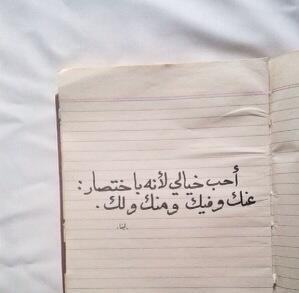 أحب خيالي لأنه باختصار :
عنك وفيك ومنك ولك .